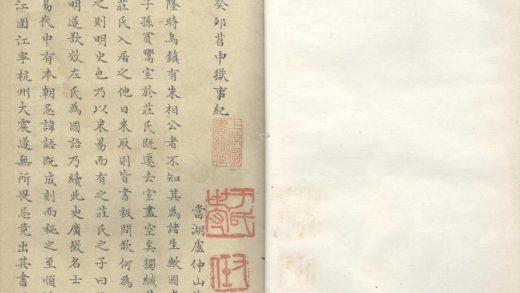 癸卯苕中獄事紀
當湖盧仲山
隆時烏鎮有朱相公者不知其為諸生歟國
子孫貧鬻室於莊氏既遷去室盡空矣獨緘
莊氏入居之他日來取則皆書板問歎何為
之則明史也乃以米易而有之莊氏之子曰
明遂效左氏為國語乃續此史廣徵名士
易代中有本朝忌諱語既成刻而秘之至順
江圍江寧杭州大震遂無所畏忌竟出其書